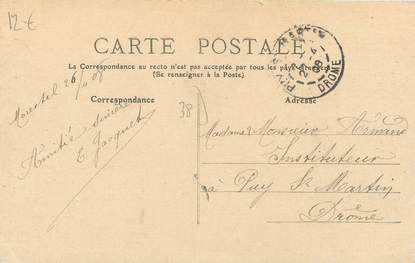 12€
CARTE POSTALE
La Correspondance au recto n'est pas acceptée par tous les pays étrangers
(Se renseigner à la Poste)
Correspondance
Adresse
DROME
38
26/ 08
Amitié sincère
E. Jacquet
Madame Monsieur Armand
Instituteur
à Puy St Martin
Drôme